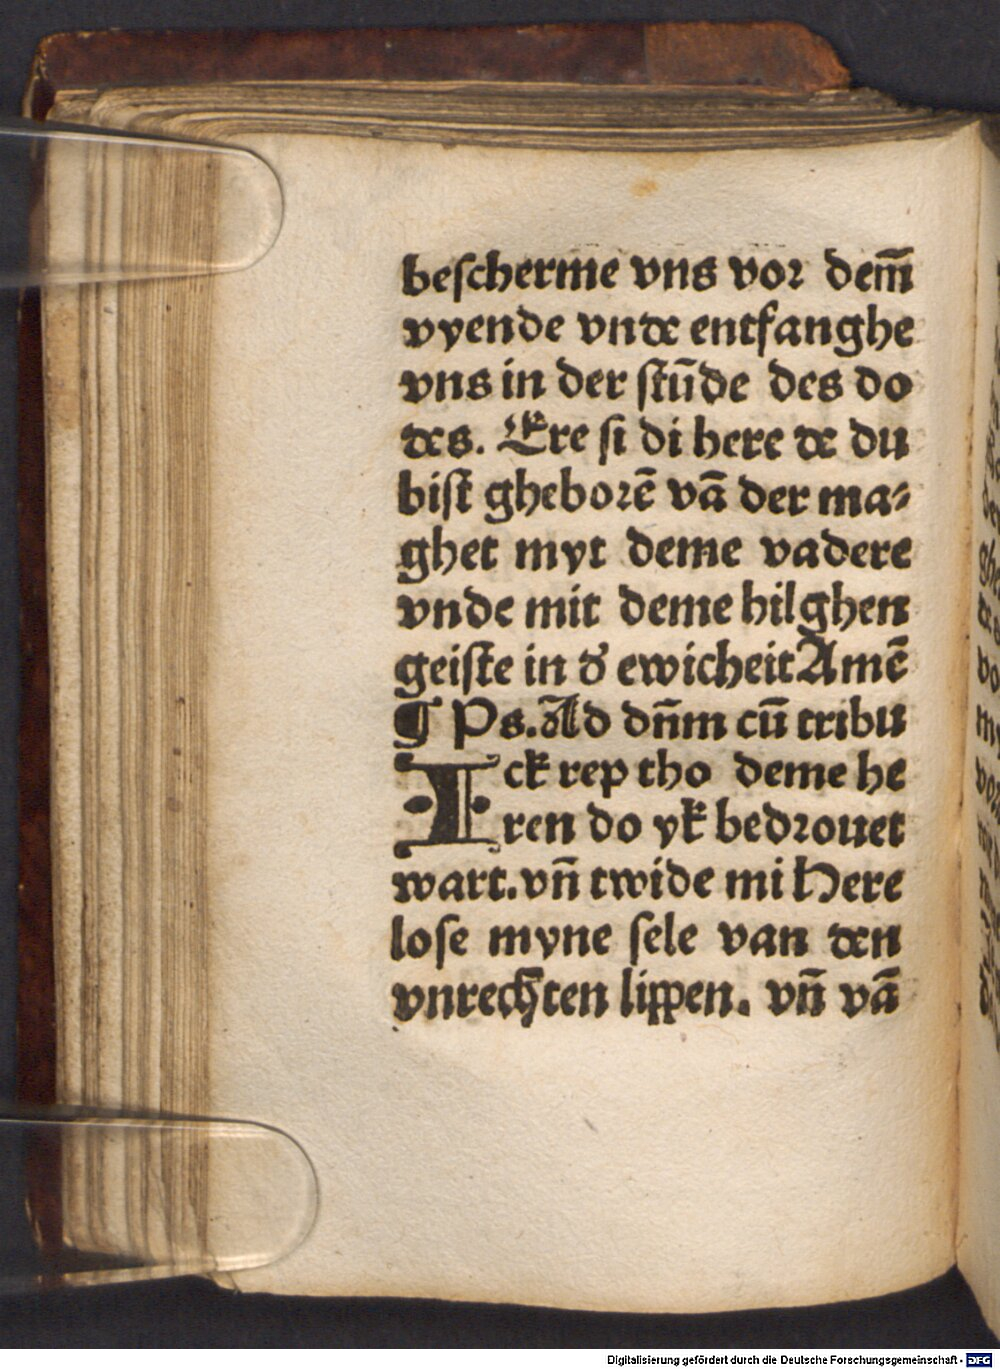 beſcherme vns vor dem̄
vyende vnde entfanghe
vns in der ſtūde des do
des. Ere ſi di here de du
biſt gheborē vā der ma⸗
ghet myt deme vadere
vnde mit deme hilghen
geiſte in d̕ ewicheit Amē
¶ Ps. Ad dn̄m cū tribu
Ick rep tho deme he
ren do yk bedrouet
wart. vn̄ twide mi Here
loſe myne ſele van den
vnrechten lippen. vn̄ vā
Digitalisierung gefördert durch die Deutsche Forschungsgemeinschaft - DFG